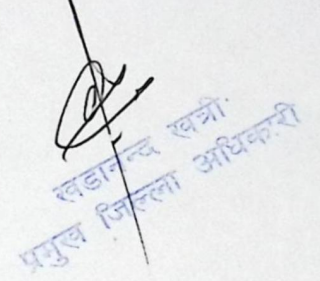 खडानन्द खत्री
प्रमुख जिल्ला अधिकारी